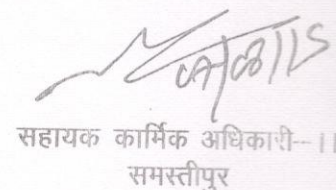 सहायक कार्मिक अधिकारी--।।
समस्तीपुर